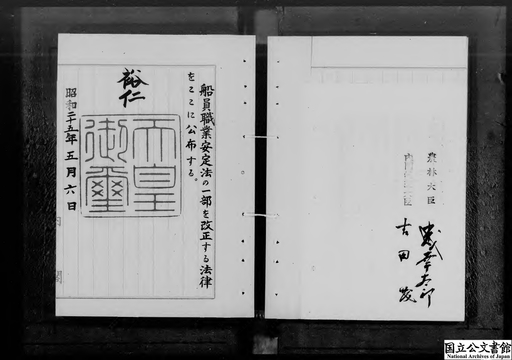 船員職業安定法の一部を改正する法律
をここに公布する。
裕仁
天皇
御璽
昭和二十五年五月六日
内閣
農林大臣
吉田茂
国立公文書館
National Archives of Japan